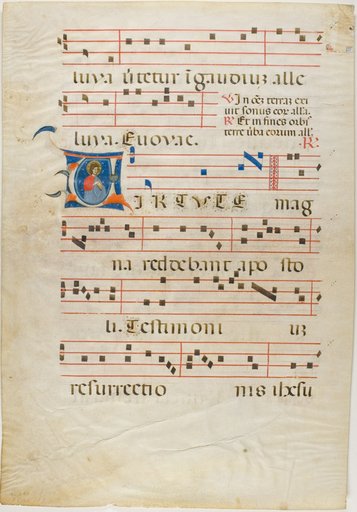 luya v̄tetur ī gaudiuȝ alle
luya. Euouae.
℣ In oēȝ terraȝ exi
uit sonus eor̄ all'a.
℟ Et in fines orbis
terre ūba eorum all'.
℟.
VIRTVTE mag
na reddebant apo sto
li. Testimoni uȝ
resurrectio nis ih̄xsu